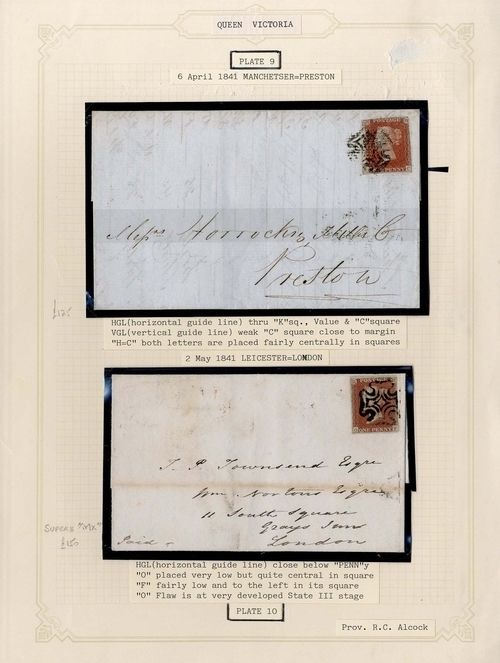 QUEEN VICTORIA
PLATE 9
6 April 1841 MANCHETSER=PRESTON
POSTAGE
PENNY
Messrs Horrocks,
Preston
£125
HGL(horizontal guide line) thru "K"sq., Value & "C"square
VGL(vertical guide line) weak "C" square close to margin
"H=C" both letters are placed fairly centrally in squares
2 May 1841 LEICESTER=LONDON
POSTAGE
ONE PENNY
T. P. Townsend Esqre
Wm. Nortons Esqre
11 South Square
Grays Inn
London
Paid
SUPERB "MX"
£150
HGL(horizontal guide line) close below "PENN"y
"O" placed very low but quite central in square
"F" fairly low and to the left in its square
"O" Flaw is at very developed State III stage
PLATE 10
Prov. R.C. Alcock